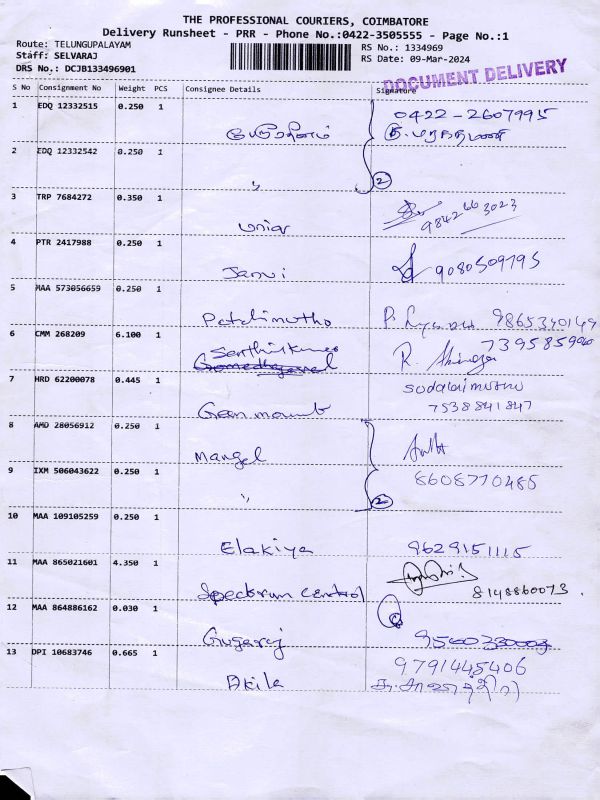 THE PROFESSIONAL COURIERS, COIMBATORE
Delivery Runsheet - PRR - Phone No.:0422-3505555 - Page No.:1
Route: TELUNGUPALAYAM
Staff: SELVARAJ
DRS No.: DCJB133496901
RS No.: 1334969
RS Date: 09-Mar-2024
DOCUMENT DELIVERY
S No Consignment No Weight PCS Consignee Details Signature
1 EDQ 12332515 0.250 1
0422-2607995
2 EDQ 12332542 0.250 1
" 2
3 TRP 7684272 0.350 1
9842663023
4 PTR 2417988 0.250 1
Janvi 9080509795
5 MAA 573056659 0.250 1
Patchimutho 9865340149
6 CMM 268209 6.100 1
Senthilkumar
7 HRD 62200078 0.445 1
Sudalaimuthu
7538841847
8 AMD 28056912 0.250 1
Mangal
9 IXM 506043622 0.250 1
8608770485
" 2
10 MAA 109105259 0.250 1
Elakiya 9629151115
11 MAA 865021601 4.350 1
Spectrum Central 8148860073.
12 MAA 864886162 0.030 1
Gugaraj
13 DPI 10683746 0.665 1
9791445406
Akila